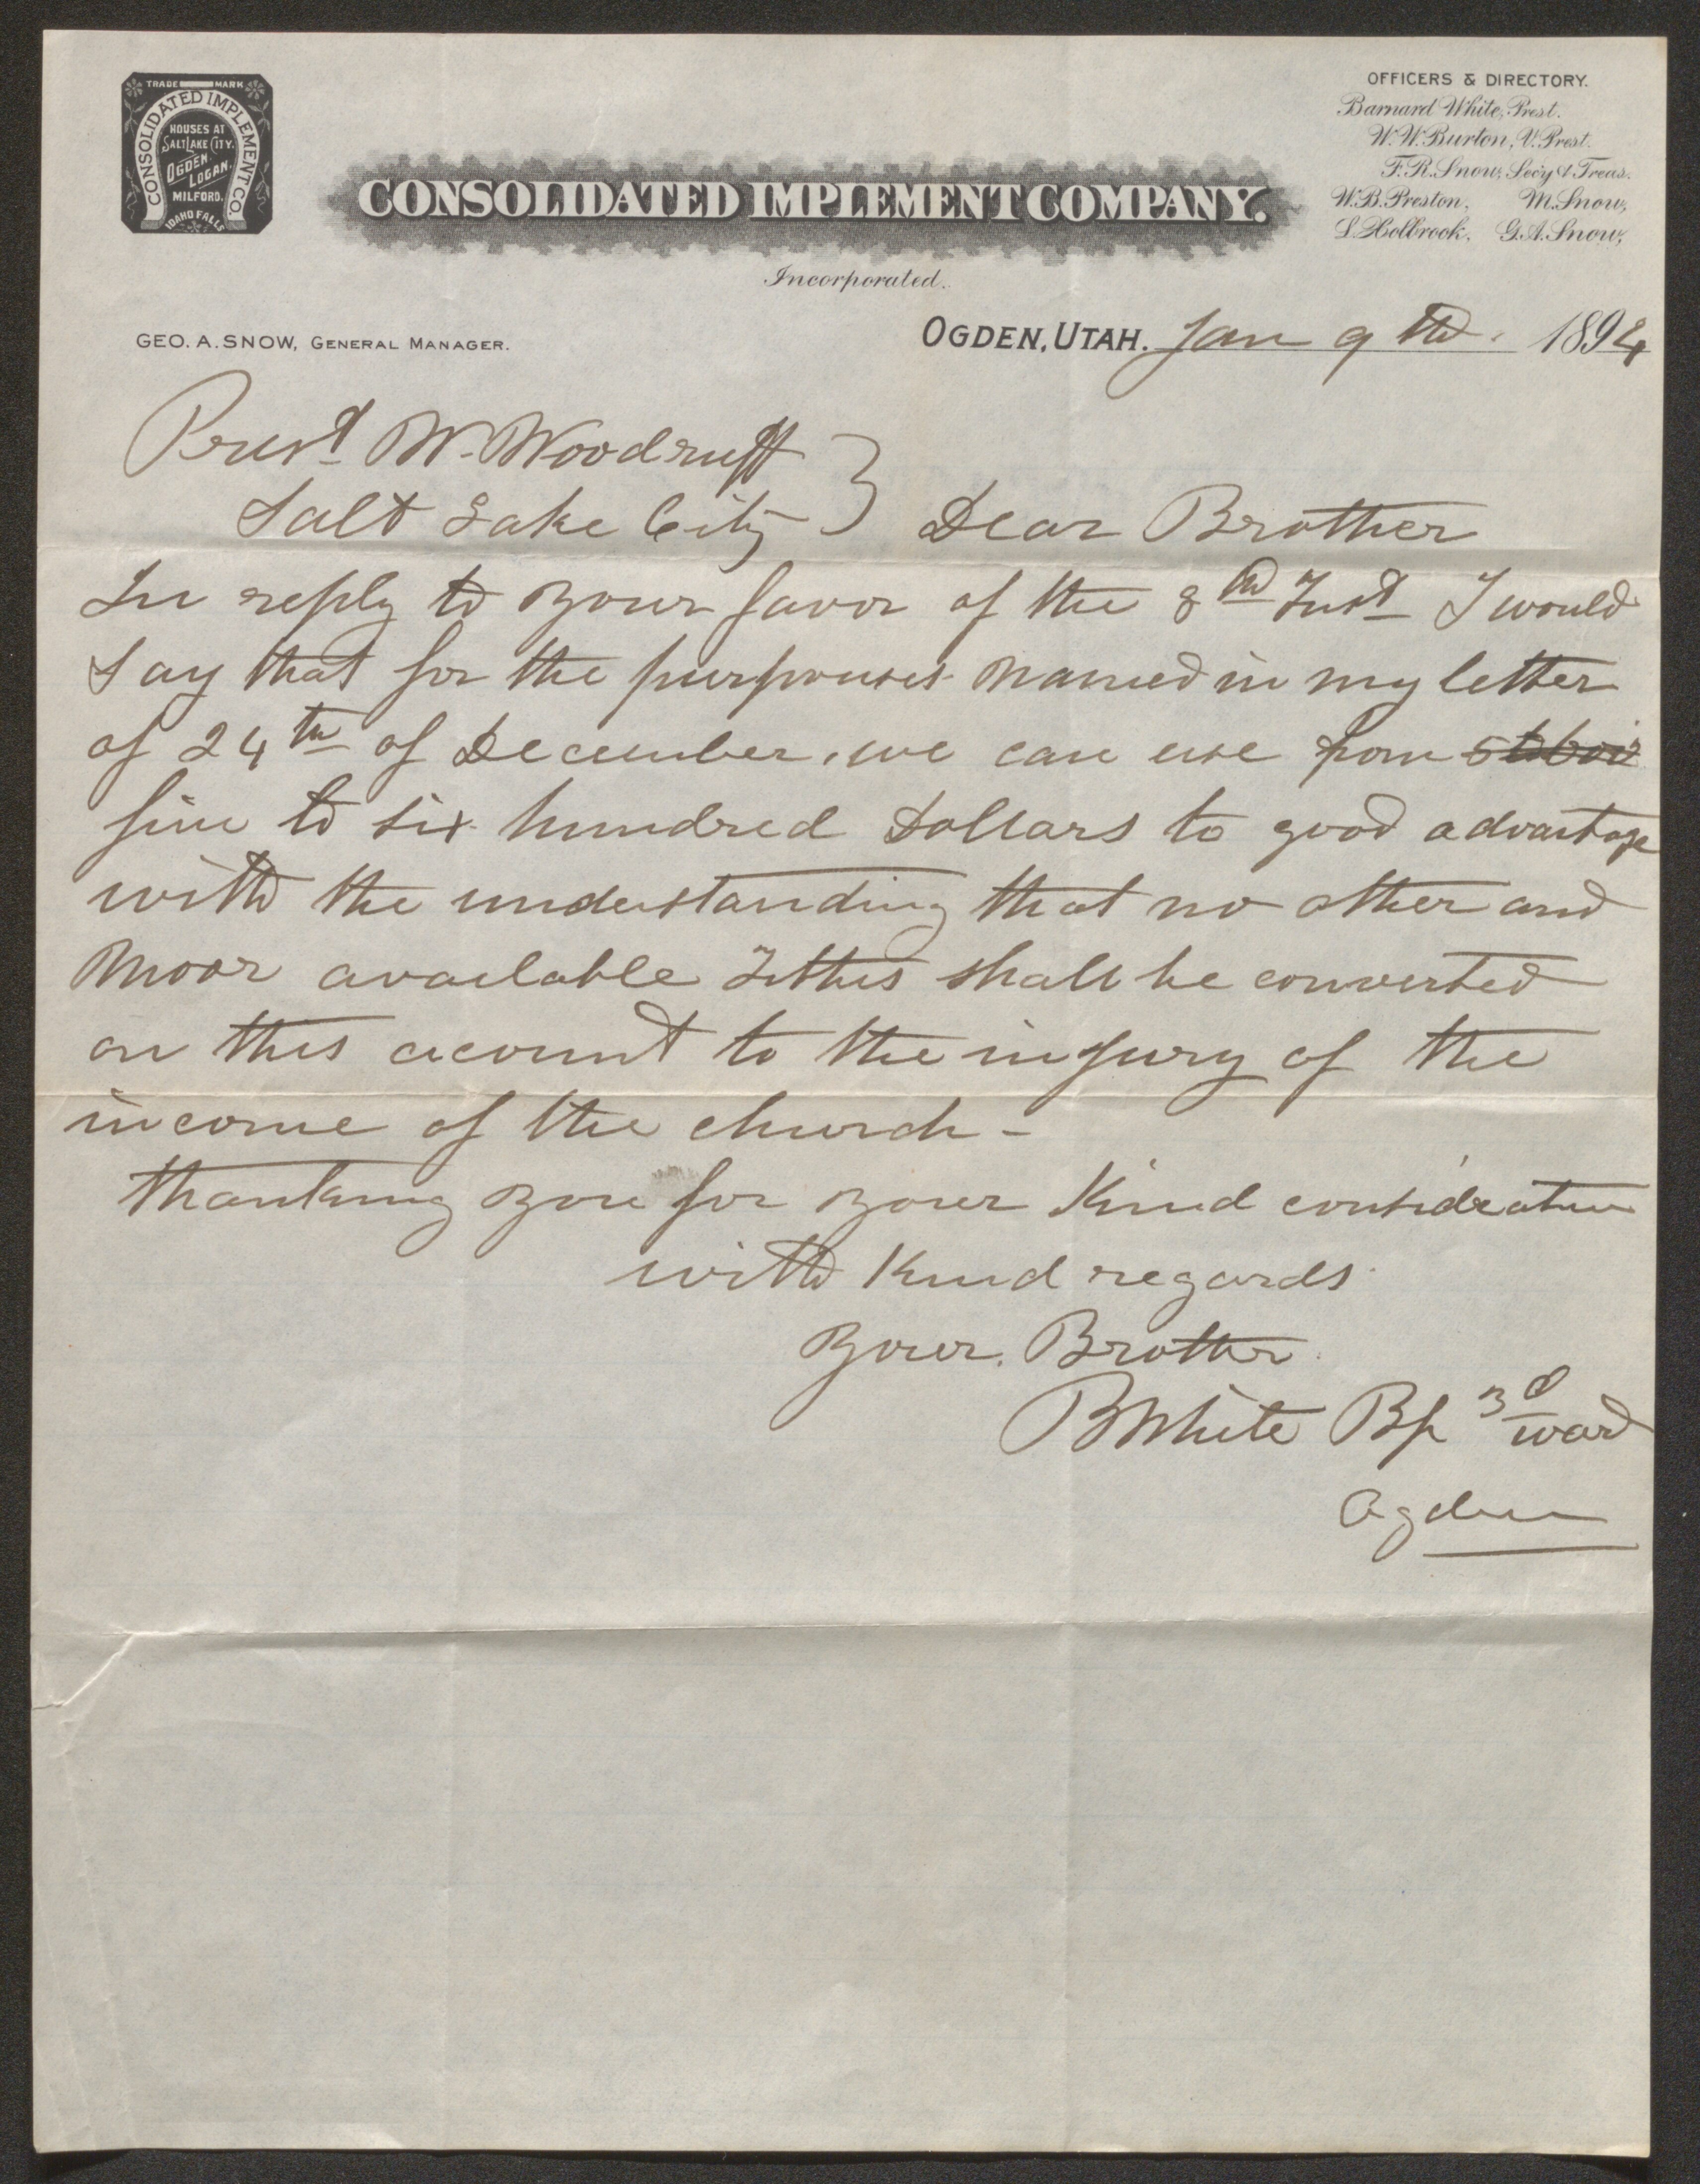 TRADE MARK
CONSOLIDATED IMPLEMENT CO.
HOUSES AT
SALT LAKE CITY.
OGDEN.
LOGAN.
MILFORD.
IDAHO FALLS
OFFICERS & DIRECTORY.
Barnard White, Prest.
W.W. Burton, V. Prest.
F.R. Snow, Secy & Treas.
W.B. Preston, M. Snow,
L. Holbrook, G.A. Snow,
CONSOLIDATED IMPLEMENT COMPANY.
Incorporated.
GEO. A. SNOW, GENERAL MANAGER.
OGDEN, UTAH. Jan 9th. 1894
Presd W. Woodruff
Salt Lake City } Dear Brother
In reply to your favor of the 8th Inst I would
say that for the purpouses named in my letter
of 24th of December, we can use from
five to six hundred Dollars to good advantage
with the understanding that no other and
moor available Tithes shall be converted
on this account to the injury of the
income of the church -
thanking you for your Kind consideration
with Kind regards
Your Brother
B White Bp 3d ward
Ogden